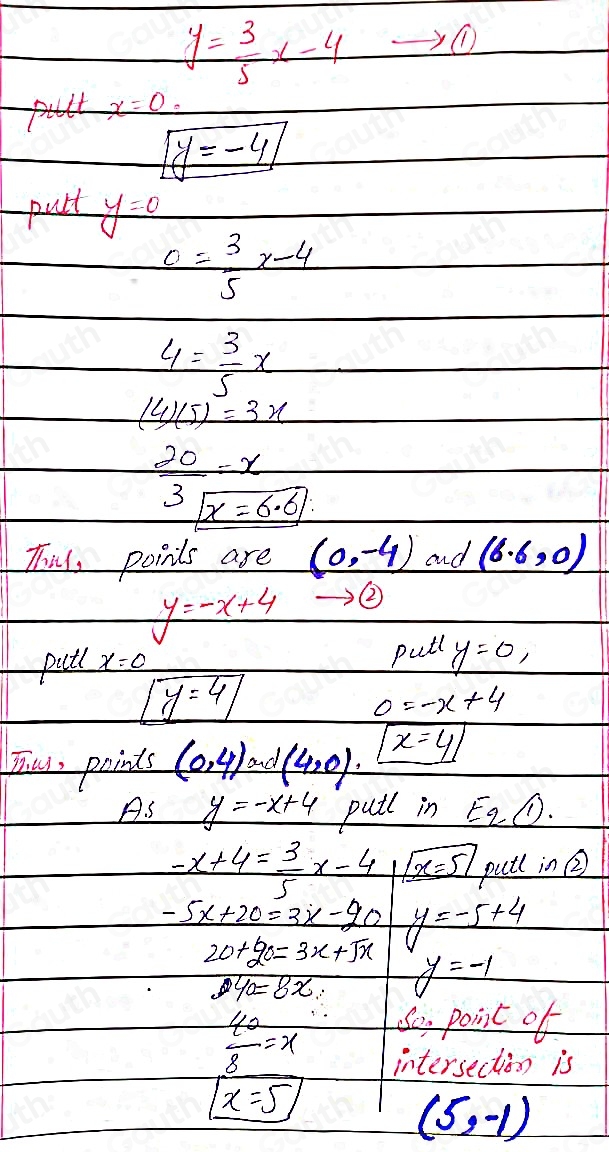 y = 3/5 x - 4 → ①
putt x = 0.
y = -4
putt y = 0
0 = 3/5 x - 4
4 = 3/5 x
(4)(5) = 3x
20/3 = x
x = 6.6
Thus, points are (0,-4) and (6.6,0)
y = -x+4 → ②
putt x = 0
y = 4
putt y = 0,
0 = -x + 4
x = 4
Thus, points (0,4) and (4,0).
As y = -x+4 putt in Eq ①.
-x+4 = 3/5 x - 4
-5x+20 = 3x - 20
20+20 = 3x+5x
40 = 8x
40/8 = x
x = 5
x = 5 putt in ②
y = -5+4
y = -1
So, point of
intersection is
(5,-1)